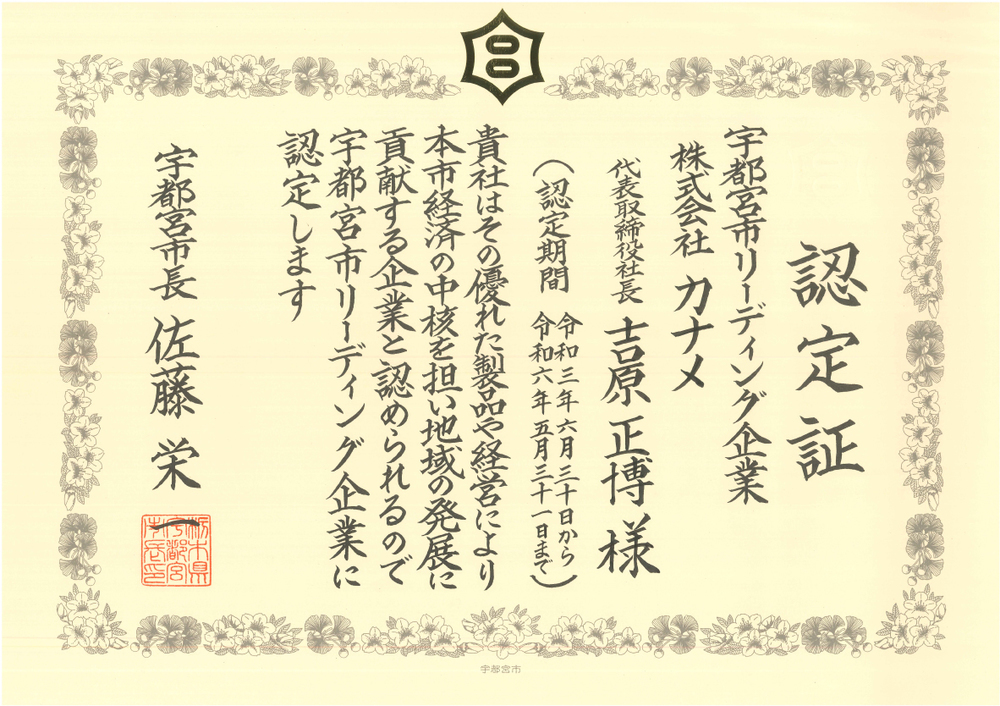 認定証
宇都宮市リーディング企業
株式会社 カナメ
代表取締役社長 吉原正博様
(認定期間 令和三年六月三十日から
令和六年五月三十一日まで)
貴社はその優れた製品や経営により
本市経済の中核を担い地域の発展に
貢献する企業と認められるので
宇都宮市リーディング企業に
認定します
宇都宮市長 佐藤栄一
栃木県
宇都宮
市長印
宇都宮市